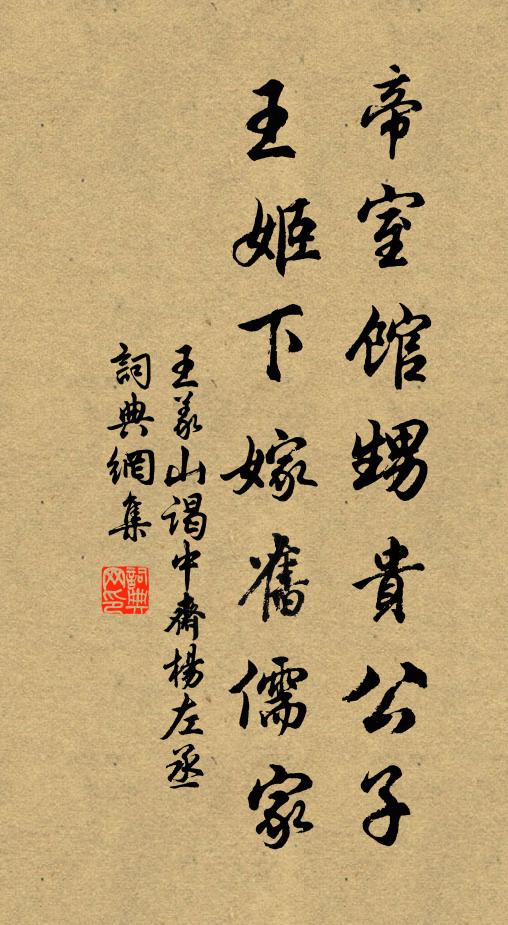 帝室馆甥貴公子
王姬下嫁舊儒家
王義山謁中齋楊左丞
詞典網集
詞典网印